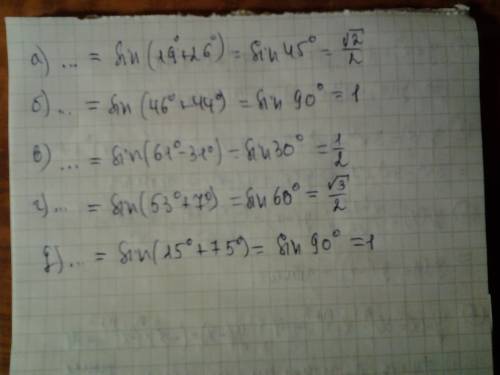 а) ... = sin(19°+26°) = sin 45° = √2/2
б) ... = sin(46°+44°) = sin 90° = 1
в) ... = sin(61°-31°) = sin 30° = 1/2
г) ... = sin(53°+7°) = sin 60° = √3/2
д) ... = sin(15°+75°) = sin 90° = 1